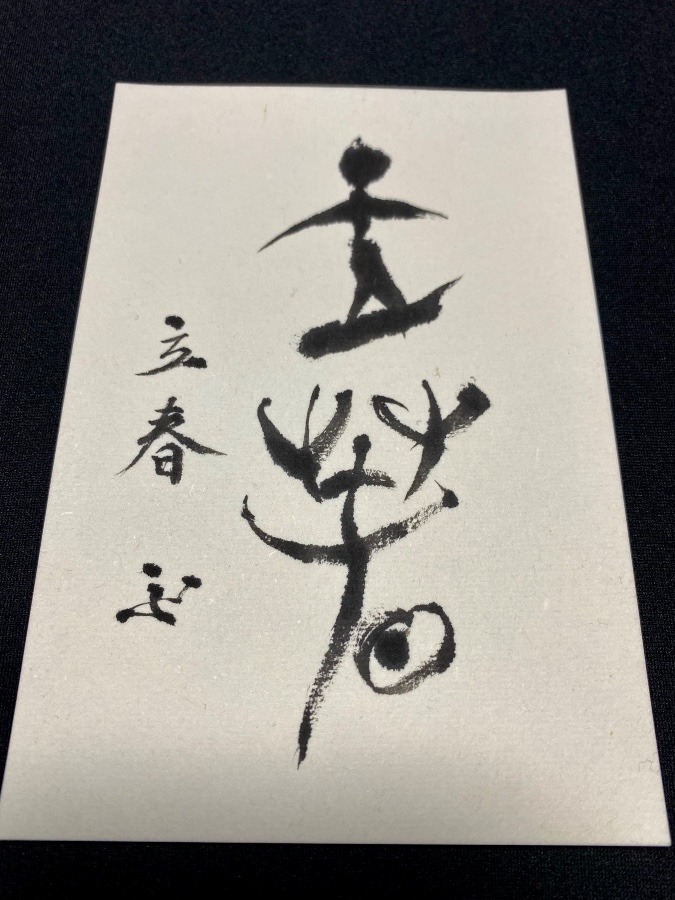 立春
立春